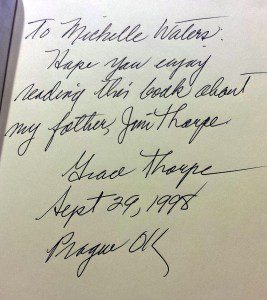 To Michelle Waters.
Hope you enjoy
reading this book about
my father, Jim Thorpe
Grace Thorpe
Sept 29, 1998
Prague OK